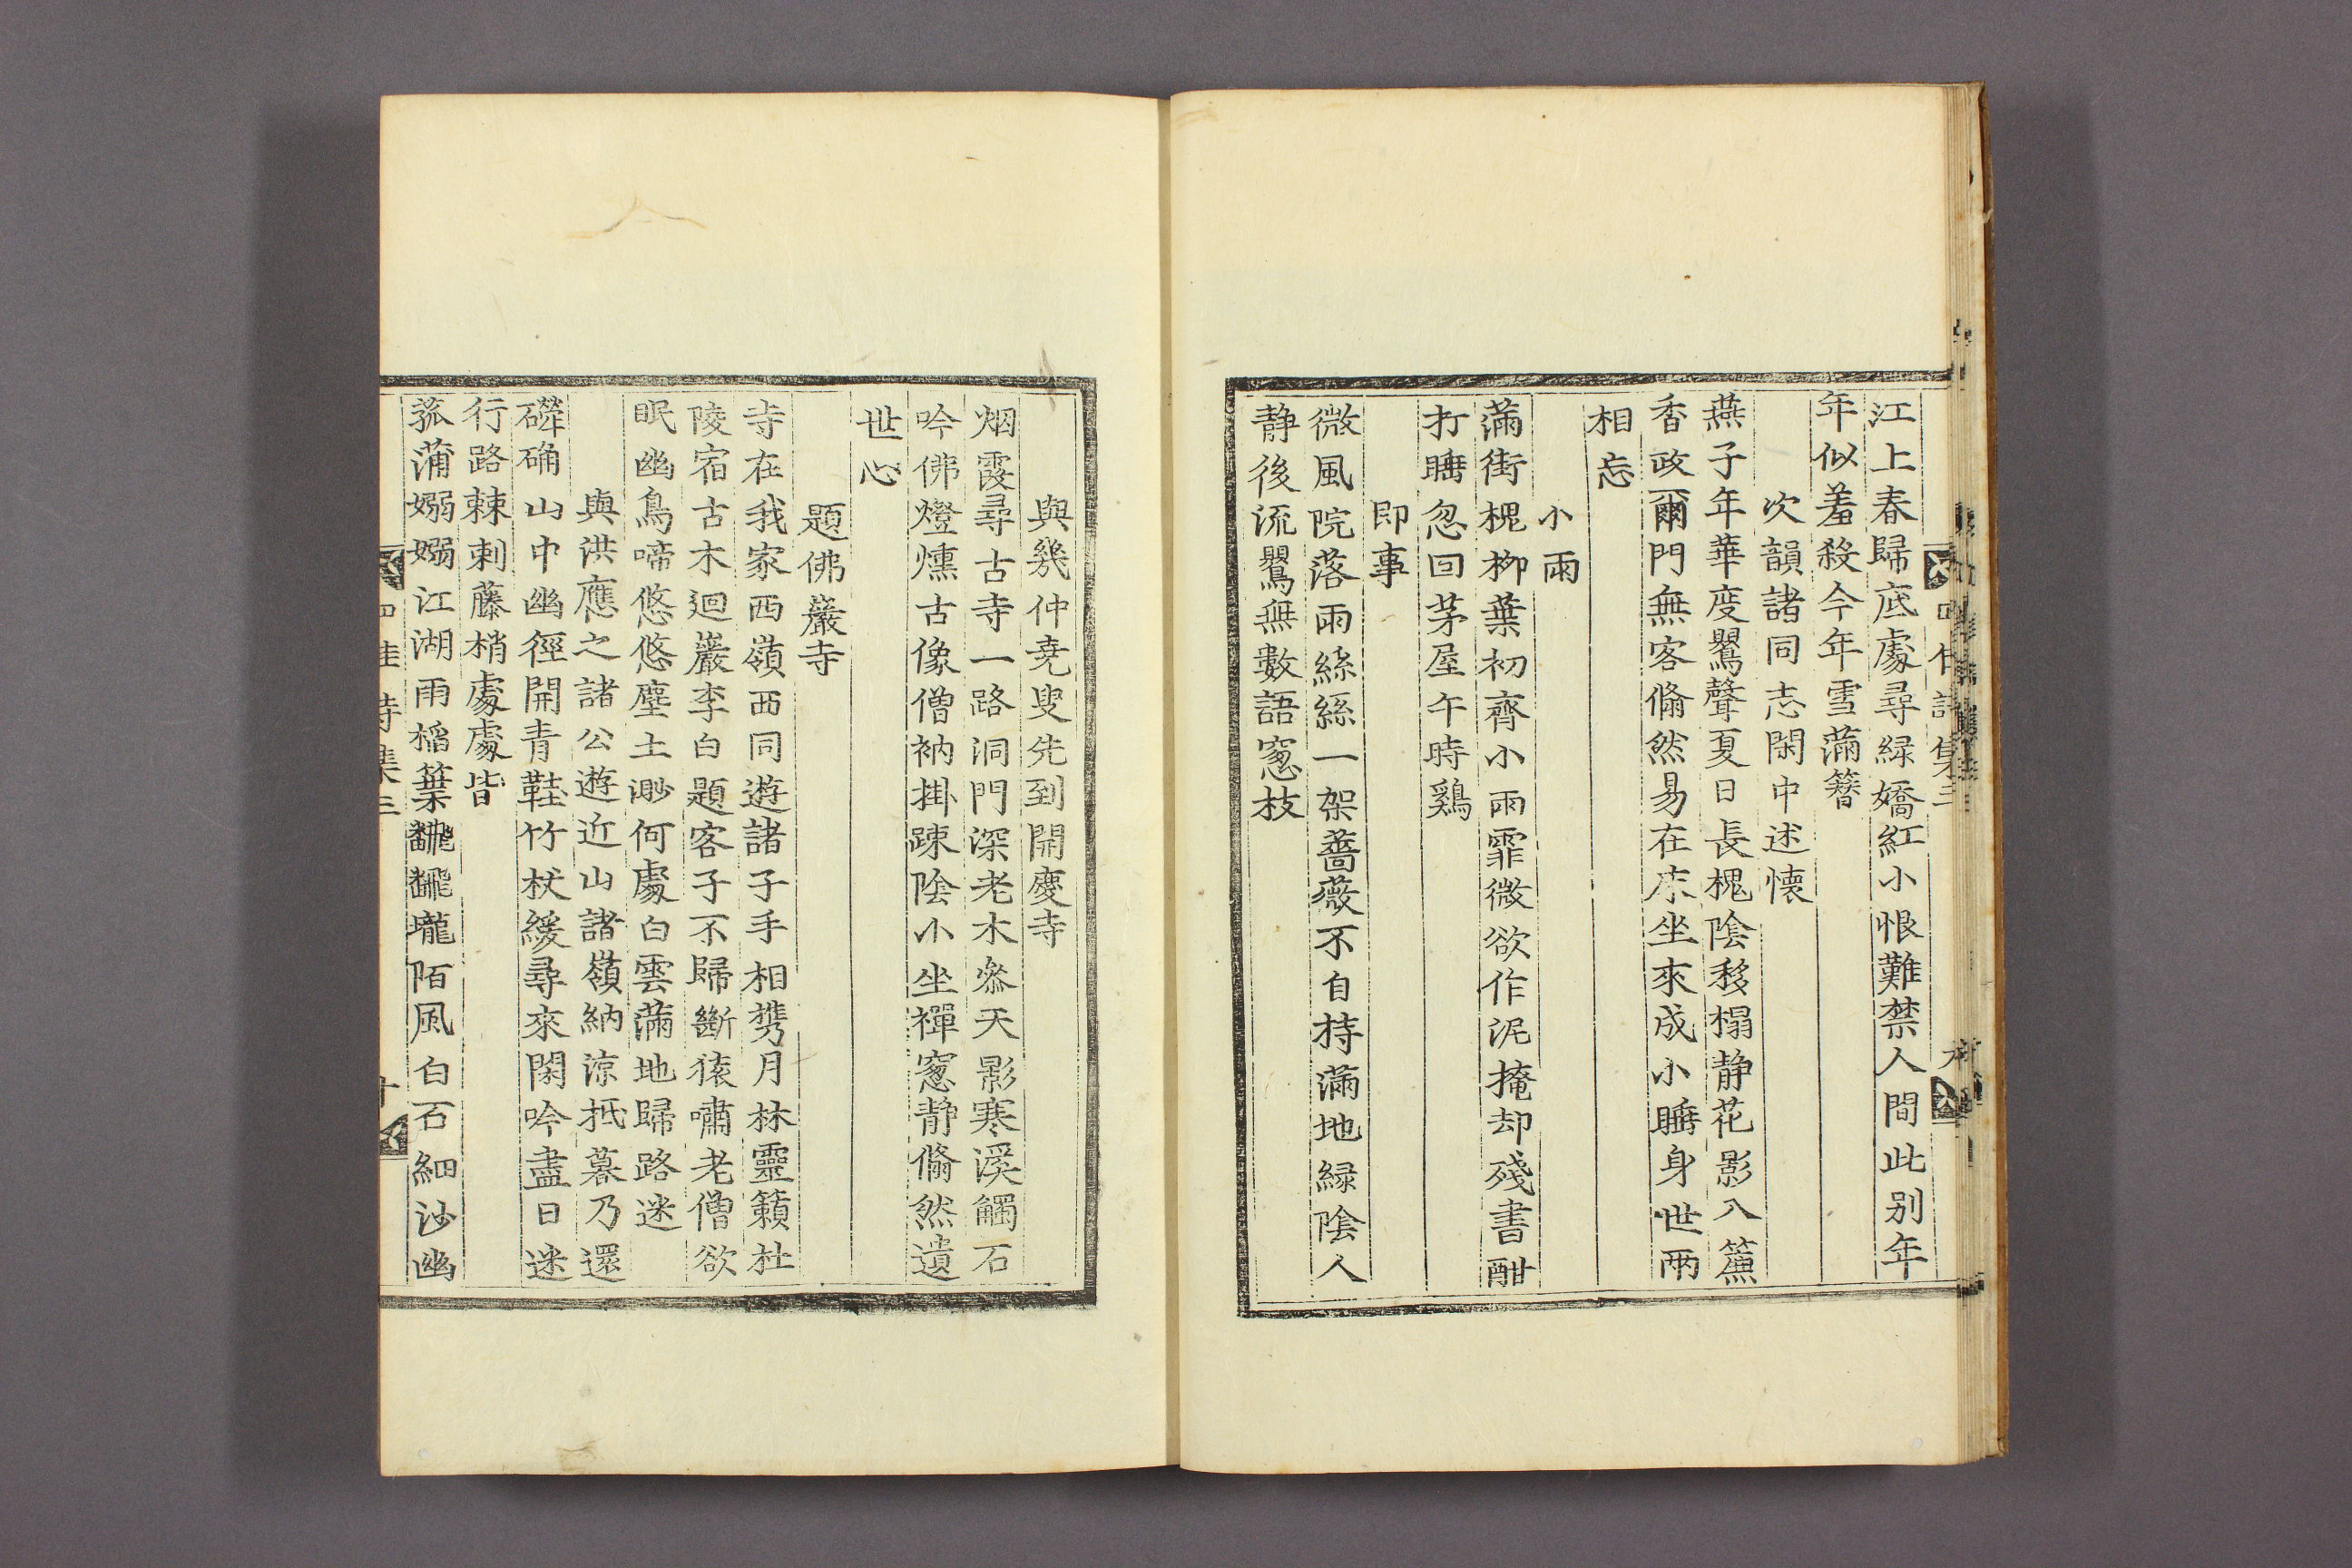 江上春歸底處尋綠嬌紅小恨難禁人間此別年
年似羞殺今年雪滿簪
次韻諸同志閑中述懷
燕子年華度鸎聲夏日長槐陰移榻静花影入簾
香政爾門無客翛然易在床坐來成小睡身世兩
相忘
小雨
滿街槐柳葉初齊小雨霏微欲作泥掩却殘書酣
打睡忽回茅屋午時鷄
即事
微風院落雨絲絲一架薔薇不自持滿地綠陰人
静後流鸎無數語窓枝
與幾仲堯叟先到開慶寺
烟霞尋古寺一路洞門深老木參天影寒溪觸石
吟佛燈燻古像僧衲掛踈陰小坐禪窓静翛然遺
世心
題佛巖寺
寺在我家西嶺西同遊諸子手相携月林靈籟杜
陵宿古木迴巖李白題客子不歸斷猿嘯老僧欲
眠幽鳥啼悠悠塵土渺何處白雲滿地歸路迷
與洪應之諸公遊近山諸嶺納涼抵暮乃還
礐确山中幽徑開青鞋竹杖緩尋來閑吟盡日迷
行路棘刺藤梢處處皆
菰蒲嫋嫋江湖雨稻葉飜飜壠陌風白石細沙幽